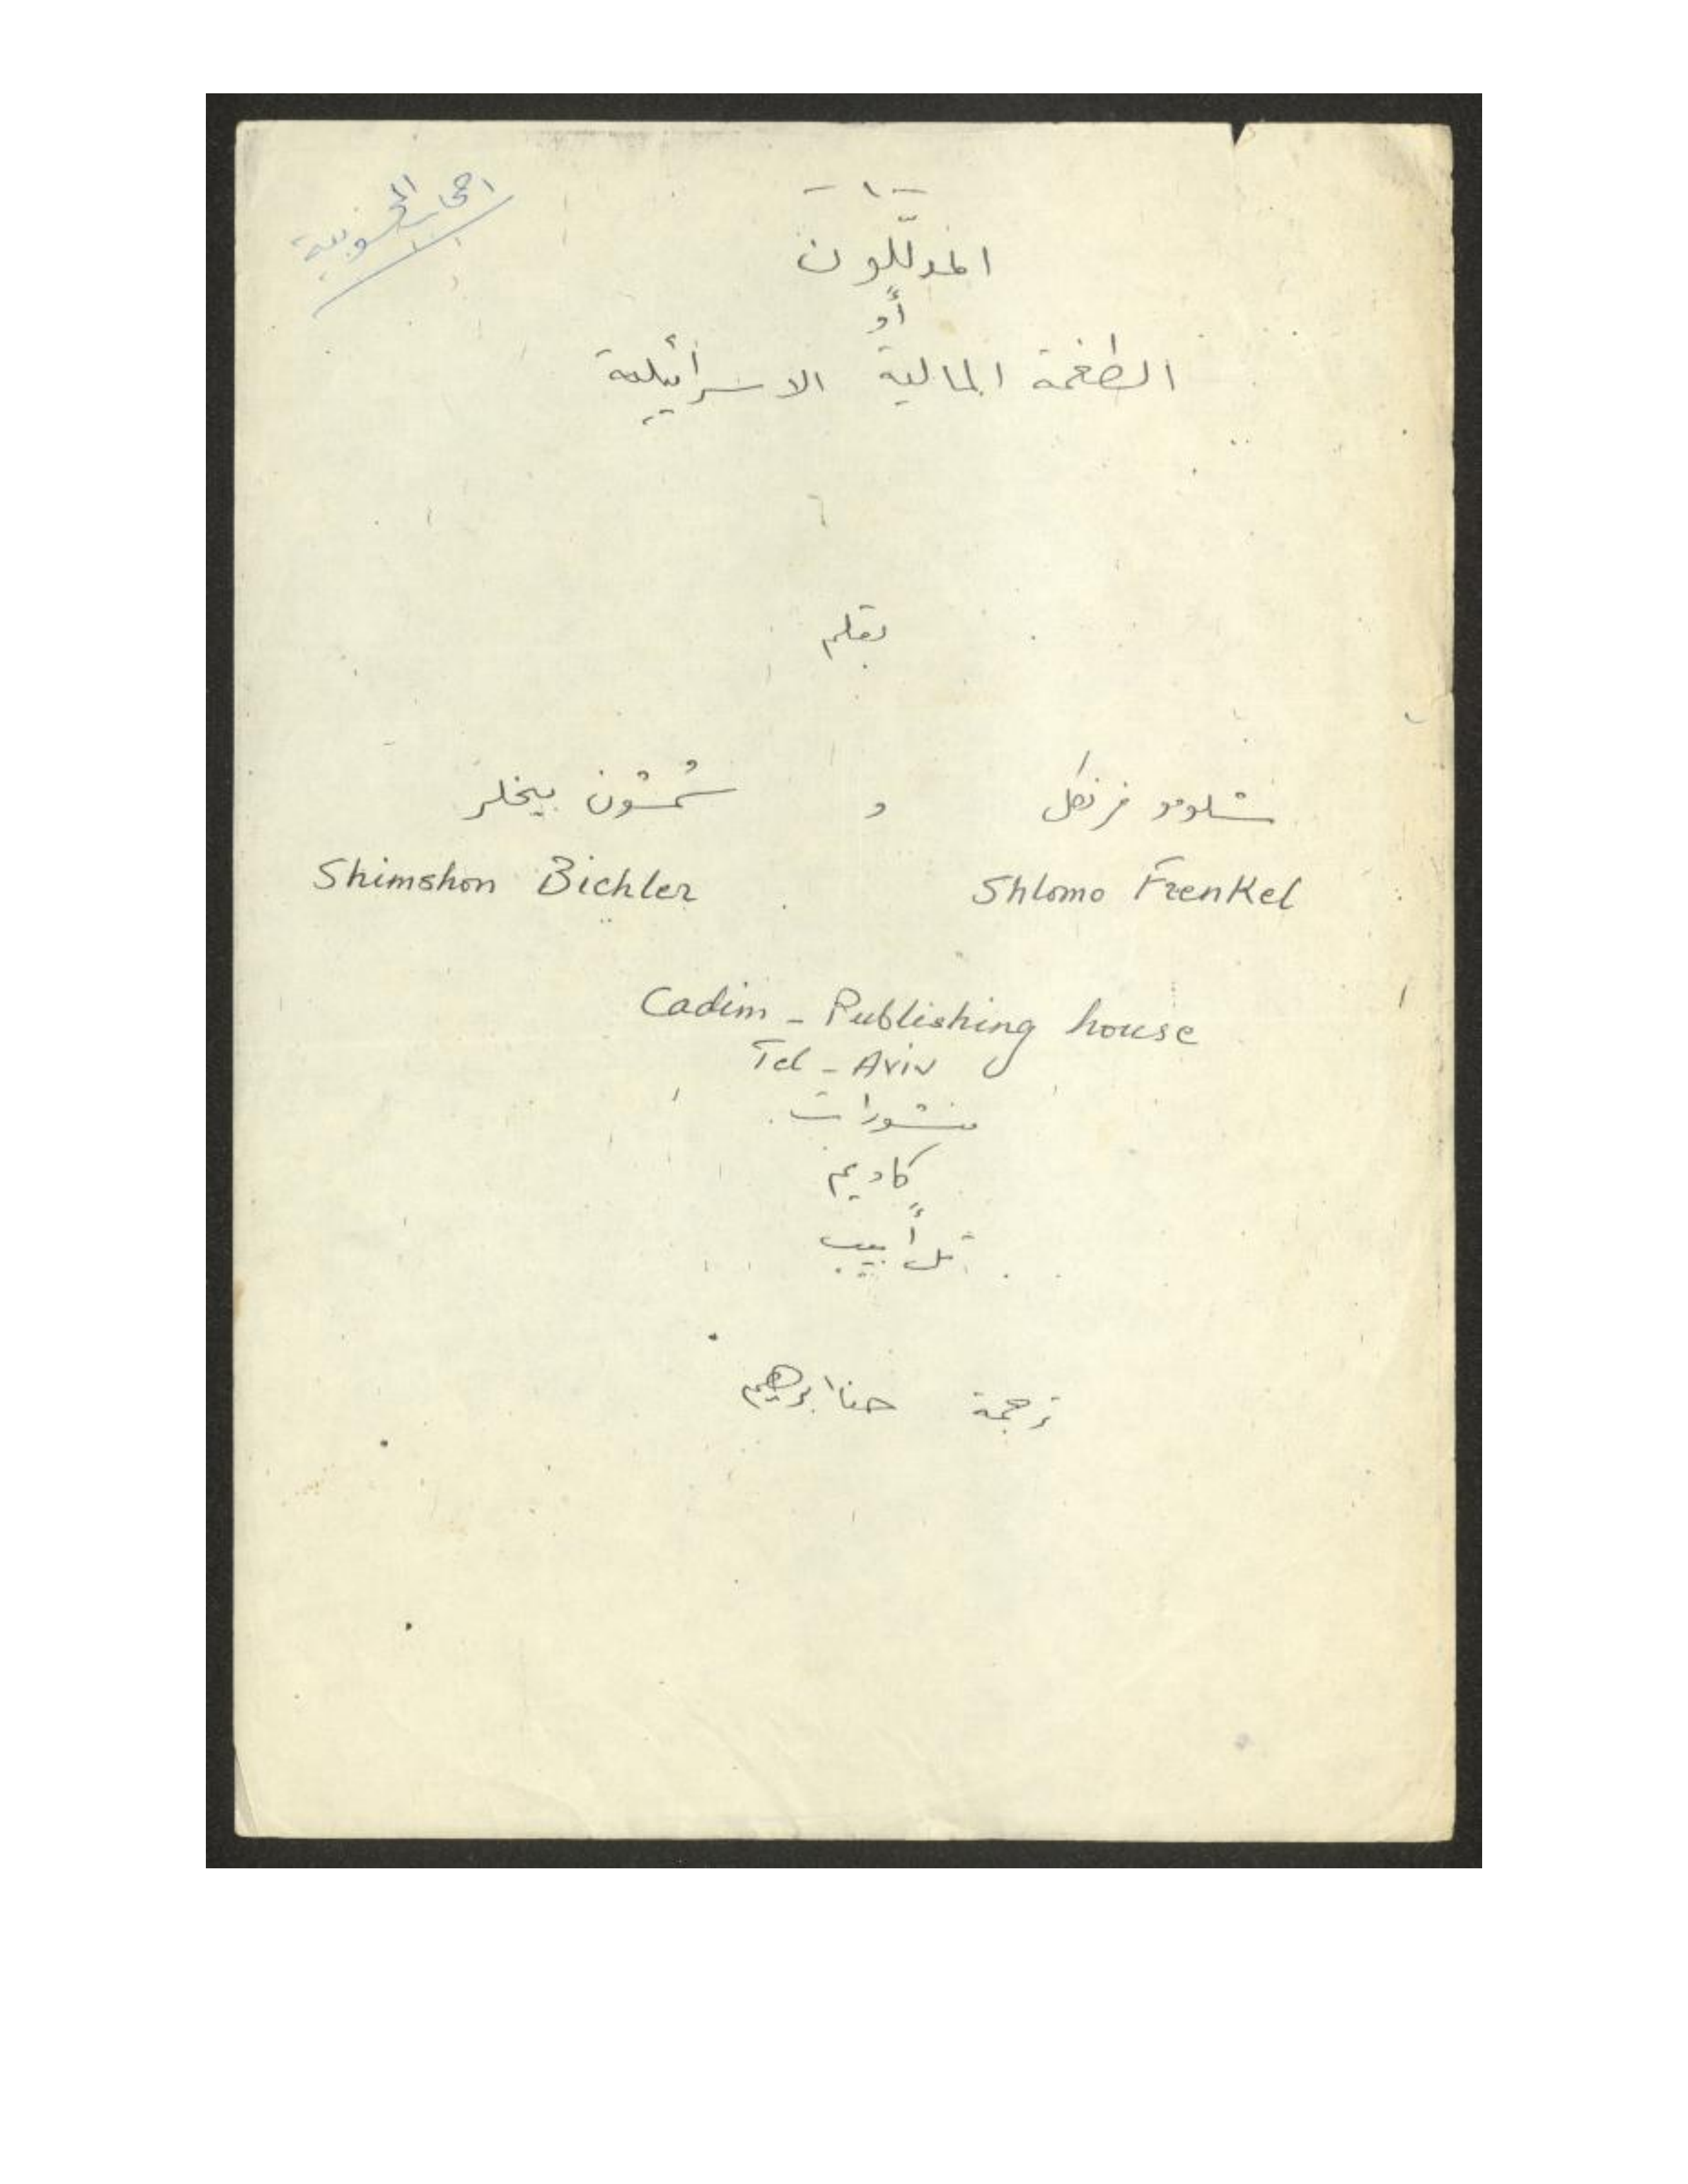 - ١ -
المدلّلون
أو
الطغمة المالية الاسرائيلية
بقلم
شلومو فرنكل و شمشون بيخلر
Shimshon Bichler Shlomo Frenkel
Cadim - Publishing house
Tel - Aviv
منشورات
كاديم
تل أبيب
ترجمة حنا ابرهيم